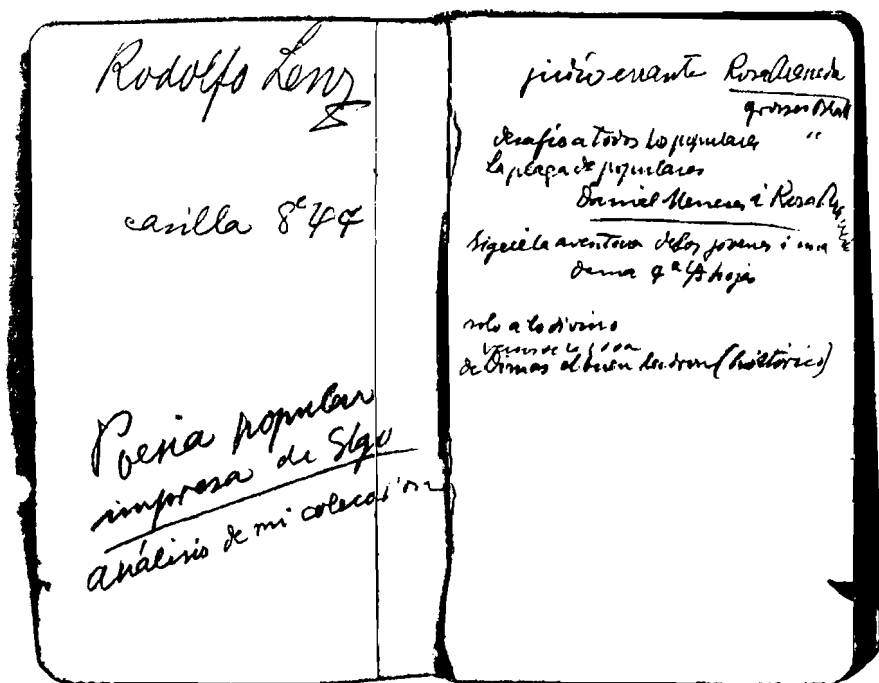 Rodolfo Lenz
casilla 844
Poesia popular
impresa de Stgo
análisis de mi colección
juicio errante Rosa Araneda
grosses Blatt
desafio a todos los populares "
la plaga de populares
Daniel Meneses i Rosa
Sigue la aventura de los jovenes i una
dama 4ª hojas
solo a lo divino
versos de la vida
de Dimas el buen ladron (histórico)